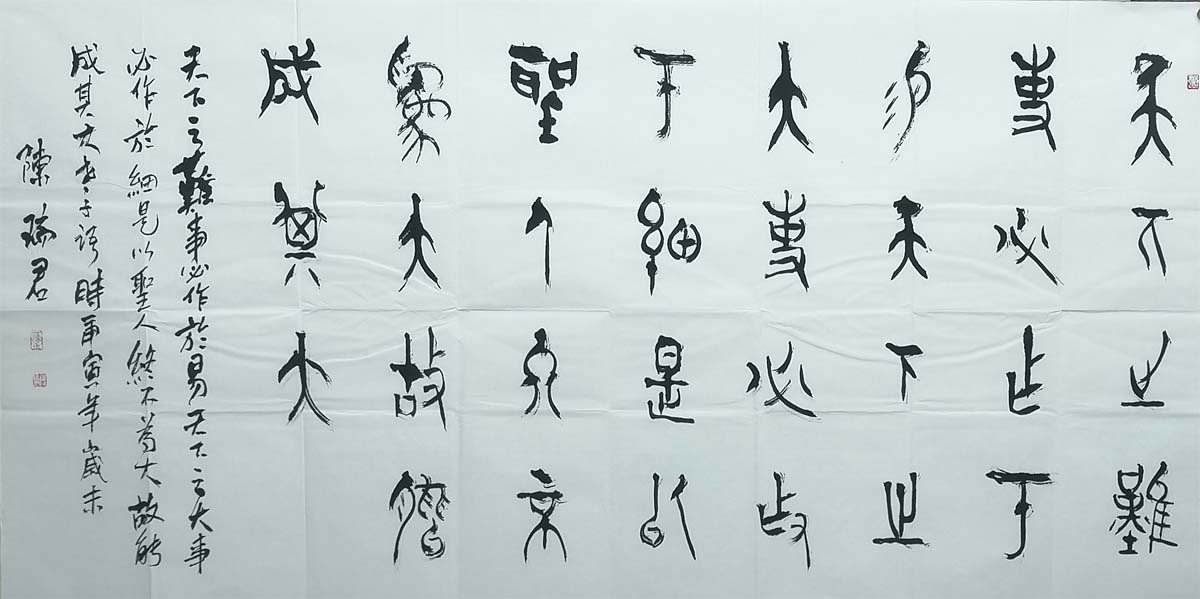 天下之難
事必作于
易天下之
大事必作
于細是以
聖人終不
為大故能
成其大
天下之難事必作於易天下之大事
必作於細是以聖人終不為大故能
成其大老子語時寅年歲末
陳瑞君